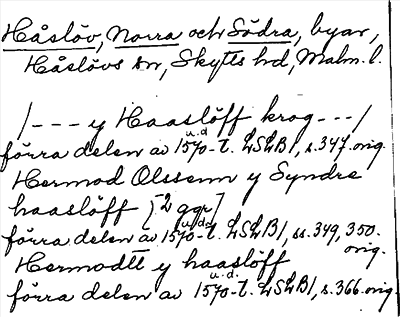 Håslöv, Norra och Södra, byar,
Håslövs sn, Skytts hd, Malm. l.
/--- y Haaslöff krog ---/
u.d.
förra delen av 1570-t. LSLB1, s. 347. orig.
Hermod Olssenn y Syndre
haaslöff [2 ggr]
u.d.
förra delen av 1570-t. LSLB1, ss. 349, 350.
orig.
Hermodtt y haaslöff
u.d.
förra delen av 1570-t. LSLB1, s. 366. orig.